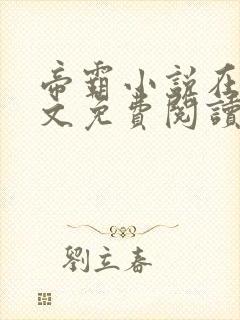 帝霸小說在
文免費閱讀
劉立春